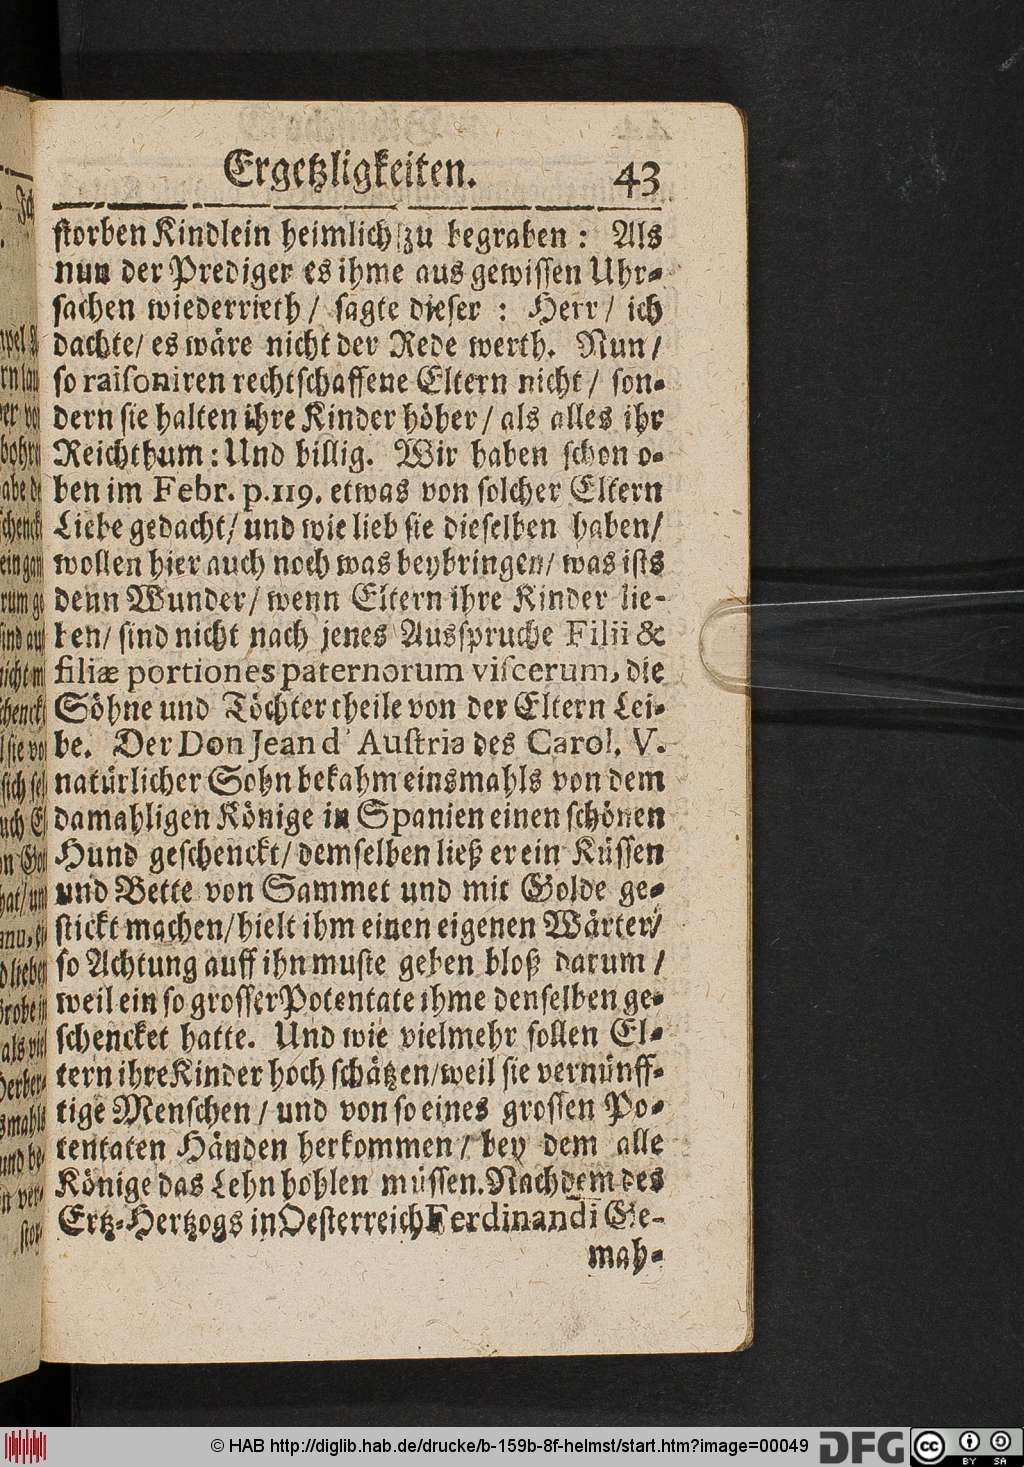 Ergetzligkeiten. 43
storben Kindlein heimlich zu begraben : Als
nun der Prediger es ihme aus gewissen Uhr-
sachen wiederrieth / sagte dieser : Herr / ich
dachte / es wäre nicht der Rede werth. Nun /
so raisoniren rechtschaffene Eltern nicht / son-
dern sie halten ihre Kinder höher / als alles ihr
Reichthum : Und billig. Wir haben schon o-
ben im Febr. p. 119. etwas von solcher Eltern
Liebe gedacht / und wie lieb sie dieselben haben /
wollen hier auch noch was beybringen / was ists
denn Wunder / wenn Eltern ihre Kinder lie-
ben / sind nicht nach jenes Ausspruche Filii &
filiæ portiones paternorum viscerum, die
Söhne und Töchter theile von der Eltern Lei-
be. Der Don Jean d' Austria des Carol. V.
natürlicher Sohn bekahm einsmahls von dem
damahligen Könige in Spanien einen schönen
Hund geschenckt / demselben ließ er ein Küssen
und Bette von Sammet und mit Golde ge-
stickt machen / hielt ihm einen eigenen Wärter /
so Achtung auff ihn muste geben bloß darum /
weil ein so grosser Potentate ihme denselben ge-
schencket hatte. Und wie vielmehr sollen El-
tern ihre Kinder hoch schätzen / weil sie vernünff-
tige Menschen / und von so eines grossen Po-
tentaten Händen herkommen / bey dem alle
Könige das Lehn hohlen müssen. Nachdem des
Ertz-Hertzogs in Oesterreich Ferdinandi Ge-
mah-
© HAB http://diglib.hab.de/drucke/b-159b-8f-helmst/start.htm?image=00049 DFG cc BY SA